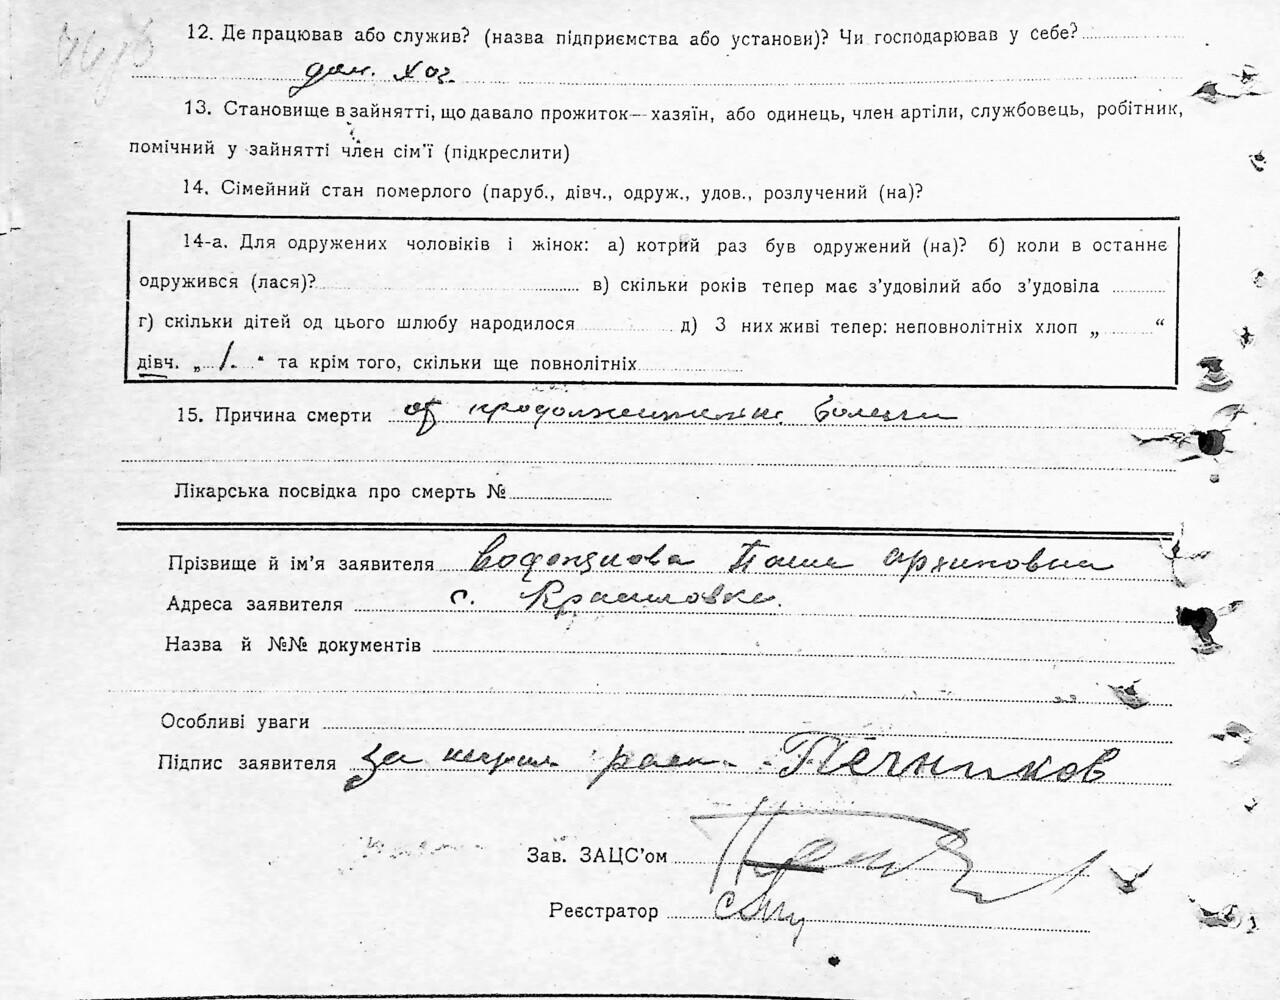 12. Де працював або служив? (назва підприємства або установи)? Чи господарював у себе?
дом. хоз.
13. Становище в зайнятті, що давало прожиток—хазяїн, або одинець, член артілі, службовець, робітник,
помічний у зайнятті член сім'ї (підкреслити)
14. Сімейний стан померлого (паруб., дівч., одруж., удов., розлучений (на)?
14-а. Для одружених чоловіків і жінок: а) котрий раз був одружений (на)? б) коли в останнє
одружився (лася)? в) скільки років тепер має з'удовілий або з'удовіла
г) скільки дітей од цього шлюбу народилося д) З них живі тепер: неповнолітніх хлоп „ “
дівч. „ 1. “ та крім того, скільки ще повнолітніх
15. Причина смерти от продолжительн. болезни
Лікарська посвідка про смерть №
Прізвище й ім'я заявителя Архиповна
Адреса заявителя с.
Назва й №№ документів
Особливі уваги
Підпис заявителя за Печников
Зав. ЗАЦС'ом
Реєстратор